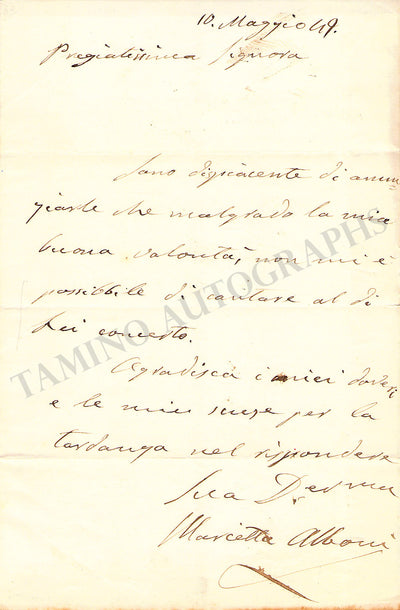 10. Maggio 49.
Pregiatissima Signora
Sono dispiacente di annun
ziarle che malgrado la mia
buona volontà, non mi è
possibbile di cantare al di
Lei concerto.
Agradisca i miei doveri
e le mie scuse per la
tardanza nel rispondere
Sua D.
Marietta Alboni
TAMINO AUTOGRAPHS